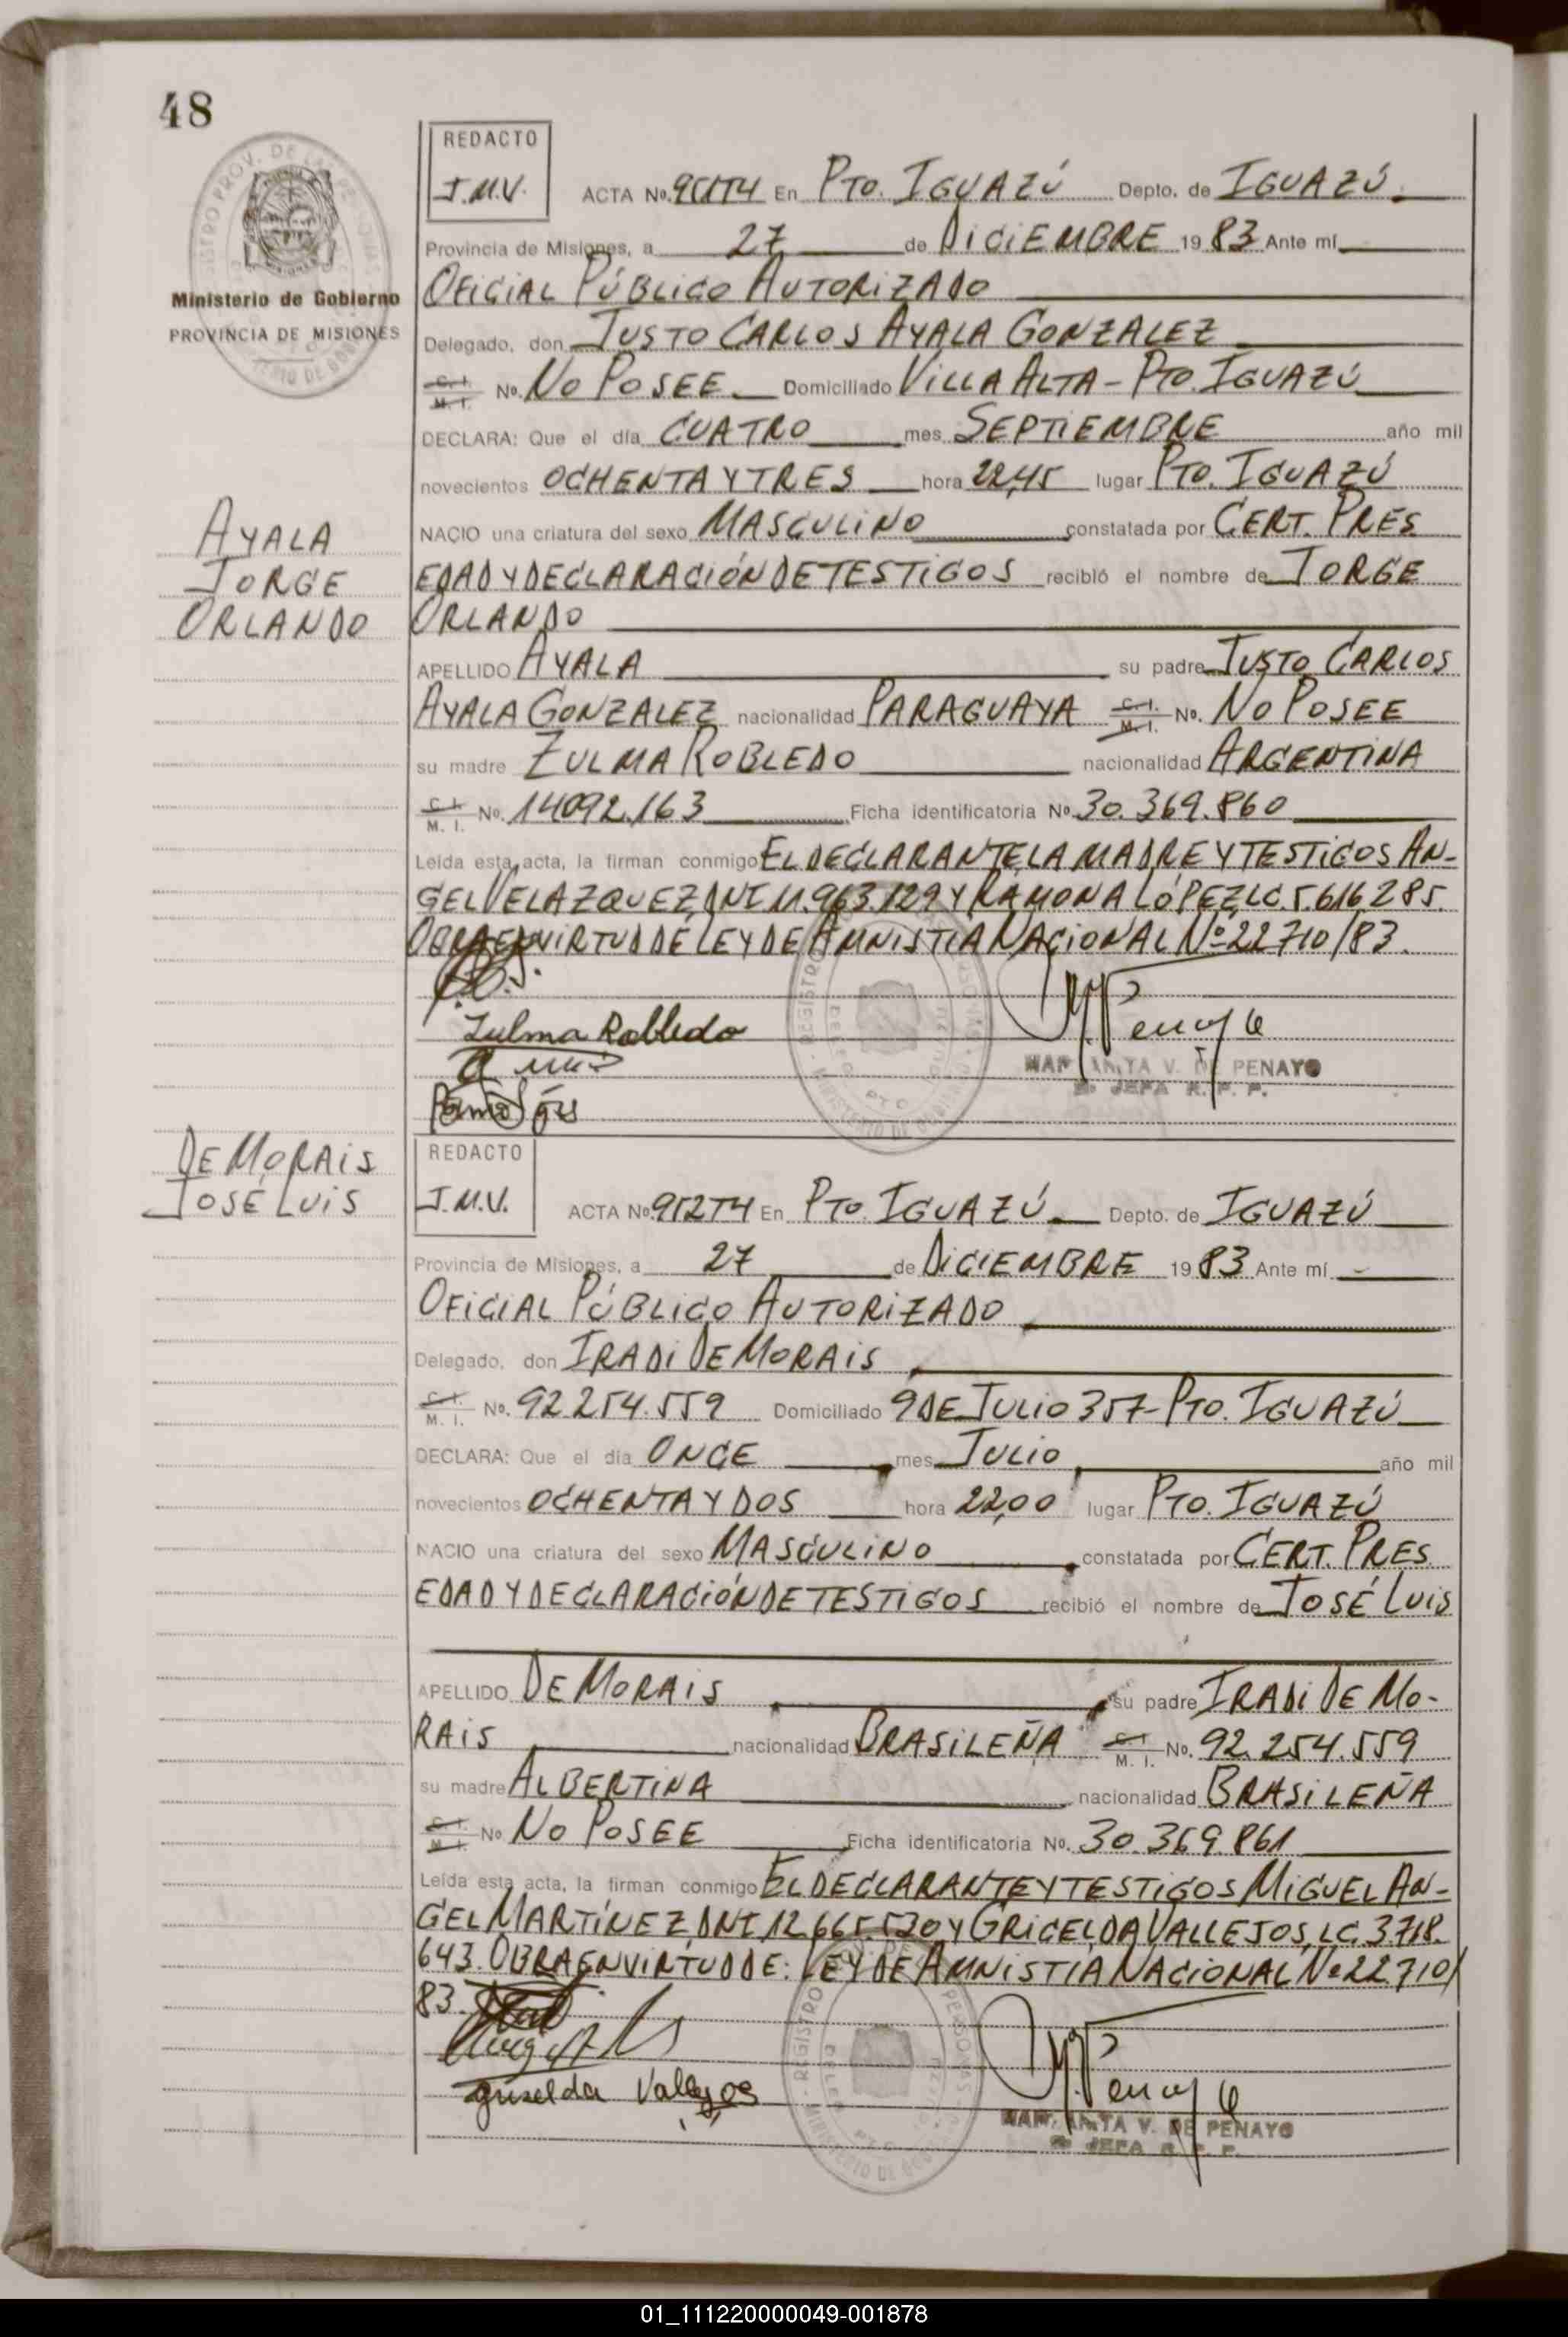 48
REDACTO
J.M.V.
ACTA No. 951T4 En PTO. IGUAZÚ Depto. de IGUAZÚ.
Provincia de Misiones, a 27 de DICIEMBRE 19 83 Ante mí
OFICIAL PÚBLICO AUTORIZADO
Ministerio de Gobierno
PROVINCIA DE MISIONES
Delegado, don JUSTO CARLOS AYALA GONZALEZ
C. I. M. I. No. NO POSEE Domiciliado VILLA ALTA - PTO. IGUAZÚ
DECLARA: Que el día CUATRO mes SEPTIEMBRE año mil
novecientos OCHENTA Y TRES hora 22,45 lugar PTO. IGUAZÚ
NACIO una criatura del sexo MASCULINO constatada por CERT. PRES
AYALA
JORGE
ORLANDO
EDAD Y DECLARACIÓN DE TESTIGOS recibió el nombre de JORGE
ORLANDO
APELLIDO AYALA su padre JUSTO CARLOS
AYALA GONZALEZ nacionalidad PARAGUAYA C. I. M. I. No. NO POSEE
su madre ZULMA ROBLEDO nacionalidad ARGENTINA
C. I. M. I. No. 14092.163 Ficha identificatoria No. 30.369.860
Leída esta acta, la firman conmigo EL DECLARANTE, LA MADRE Y TESTIGOS AN-
GEL VELAZQUEZ, DNI 11.963.129 Y RAMONA LÓPEZ LC. 5.616.285.
OBRA EN VIRTUD DE LEY DE AMNISTIA NACIONAL Nº 22710/83.
Zulma Robledo
V. DE PENAYO
JEFA R. P. P.
DE MORAIS
JOSÉ LUIS
REDACTO
J.M.V.
ACTA No. 952T4 En PTO. IGUAZÚ Depto. de IGUAZÚ
Provincia de Misiones, a 27 de DICIEMBRE 19 83 Ante mí
OFICIAL PÚBLICO AUTORIZADO
Delegado, don IRADI DE MORAIS
C. I. M. I. No. 92.254.559 Domiciliado 9 DE JULIO 357 - PTO. IGUAZÚ
DECLARA: Que el día ONCE mes JULIO año mil
novecientos OCHENTA Y DOS hora 22,00 lugar PTO. IGUAZÚ
NACIO una criatura del sexo MASCULINO constatada por CERT. PRES
EDAD Y DECLARACIÓN DE TESTIGOS recibió el nombre de JOSÉ LUIS
APELLIDO DE MORAIS su padre IRADI DE MO-
RAIS nacionalidad BRASILEÑA C. I. M. I. No. 92.254.559
su madre ALBERTINA nacionalidad BRASILEÑA
C. I. M. I. No. NO POSEE Ficha identificatoria No. 30.369.861
Leída esta acta, la firman conmigo EL DECLARANTE Y TESTIGOS MIGUEL AN-
GEL MARTÍNEZ, DNI 12.665.520 Y GRICELDA VALLEJOS, LC. 3.718.
643. OBRA EN VIRTUD DE: LEY DE AMNISTIA NACIONAL Nº 22.710/
83.
Griselda Vallejos
V. DE PENAYO
JEFA R. P. P.
01_111220000049-001878